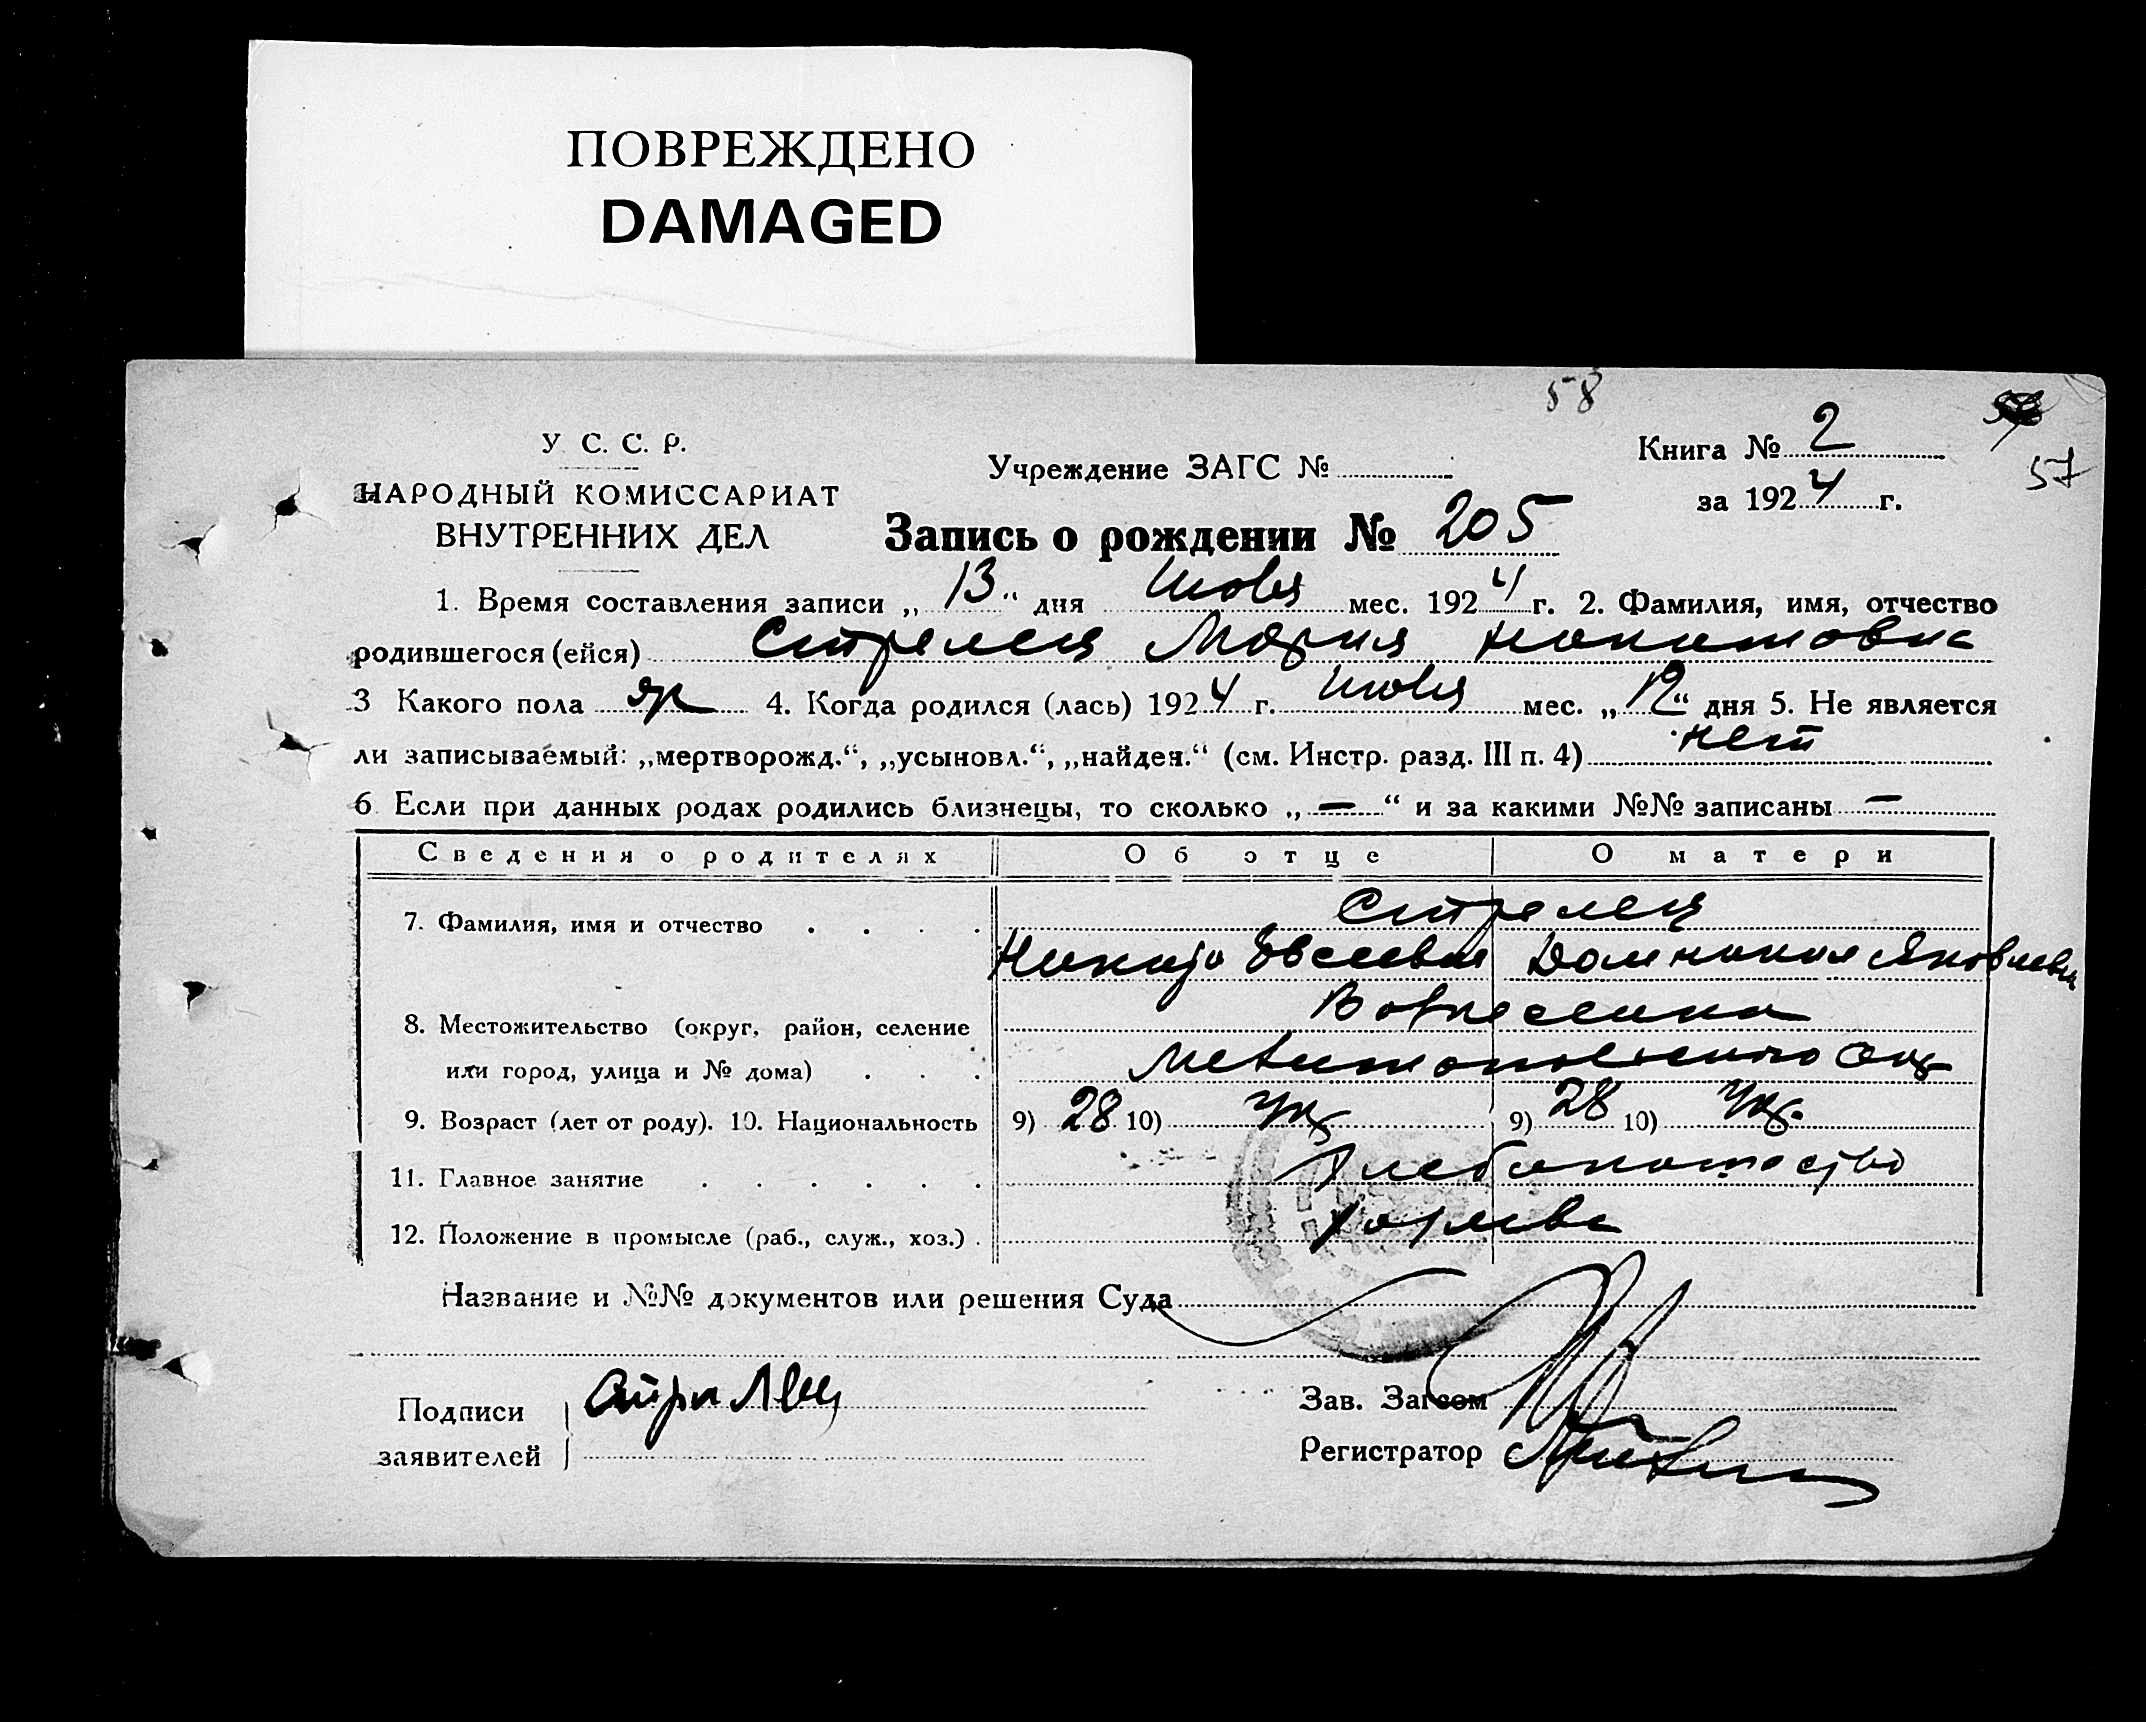 ПОВРЕЖДЕНО
DAMAGED
58
У. С. С. Р.
Книга № 2
57
НАРОДНЫЙ КОМИССАРИАТ
Учреждение ЗАГС №
за 1924 г.
ВНУТРЕННИХ ДЕЛ
Запись о рождении № 205
1. Время составления записи „13“ дня Июля мес. 1924 г. 2. Фамилия, имя, отчество
родившегося (ейся) Стрелец Мария Никитовна
3 Какого пола 4. Когда родился (лась) 1924 г. Июля мес. „12“ дня 5. Не является
ли записываемый: „мертворожд.“, „усыновл.“, „найден.“ (см. Инстр. разд. III п. 4) нет
6. Если при данных родах родились близнецы, то сколько „—“ и за какими №№ записаны —
Сведения о родителях Об отце О матери
7. Фамилия, имя и отчество . . . . Стрелец
Никита Евсеевич Домникия Яковлевна
8. Местожительство (округ, район, селение Вознесенка
или город, улица и № дома) . . . Мелитопольского Окр
9. Возраст (лет от роду). 10. Национальность 9) 28 10) Укр 9) 28 10) Укр.
11. Главное занятие . . . . . . Хлебопашество
12. Положение в промысле (раб., служ., хоз.) . хозяева
Название и №№ документов или решения Суда
Подписи Стрилец
заявителей
Зав. Загсом
Регистратор